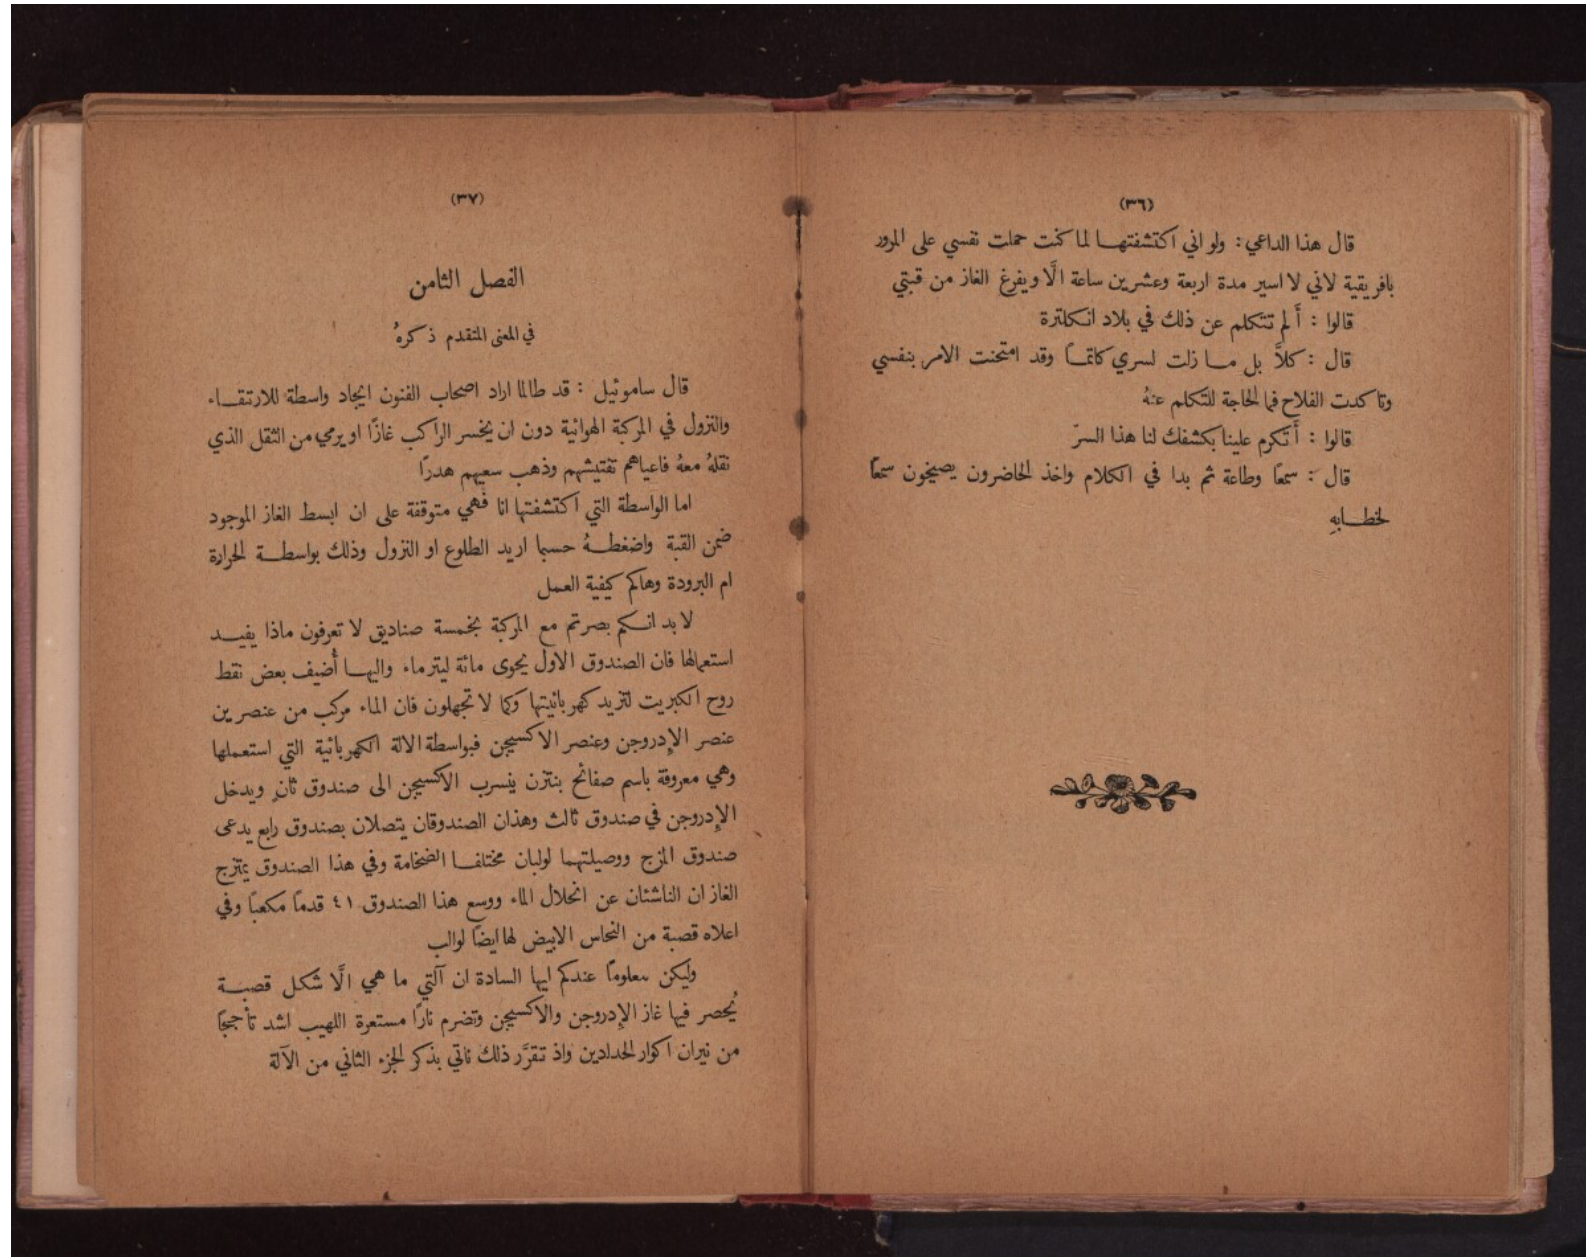 (٣٦)
قال هذا الداعي: ولو اني اكتشفتها لما كنت حملت نفسي على المرور
بافريقية لاني لا اسير مدة اربعة وعشرين ساعة الَّا ويفرغ الغاز من قبتي
قالوا : أَلم تتكلم عن ذلك في بلاد انكلترة
قال : كلاَّ بل ما زلت لسري كاتمًا وقد امتحنت الامر بنفسي
وتاكدت الفلاح فما الحاجة للتكلم عنهُ
قالوا : أَتكرم علينا بكشفك لنا هذا السرّ
قال : سمعًا وطاعة ثم بدا في الكلام واخذ الحاضرون يصيخون سمعًا
لخطابهِ
(٣٧)
الفصل الثامن
في المعنى المتقدم ذكرهُ
قال ساموئيل : قد طالما اراد اصحاب الفنون ايجاد واسطة للارتقاء
والنزول في المركبة الهوائية دون ان يخسر الراكب غازًا او يرمي من الثقل الذي
نقلهُ معهُ فاعياهم تفتيشهم وذهب سعيهم هدرًا
اما الواسطة التي اكتشفتها انا فهي متوقفة على ان ابسط الغاز الموجود
ضمن القبة واضغطهُ حسبما اريد الطلوع او النزول وذلك بواسطة الحرارة
ام البرودة وهاكم كيفية العمل
لا بد انكم بصرتم مع المركبة بخمسة صناديق لا تعرفون ماذا يفيد
استعمالها فان الصندوق الاول يحوى مائة ليتر ماء واليها أُضيف بعض نقط
روح الكبريت لتزيد كهربائيتها وكما لا تجهلون فان الماء مركب من عنصرين
عنصر الإِدروجن وعنصر الاكسيجن فبواسطة الالة الكهربائية التي استعملها
وهي معروفة باسم صفائح بنتزن ينسرب الاكسيجن الى صندوق ثانٍ ويدخل
الإِدروجن في صندوق ثالث وهذان الصندوقان يتصلان بصندوق رابع يدعى
صندوق المزج ووصيلتهما لولبان مختلفا الضخامة وفي هذا الصندوق يمتزج
الغازان الناشئان عن انحلال الماء ووسع هذا الصندوق ٤١ قدمًا مكعبًا وفي
اعلاه قصبة من النحاس الابيض لها ايضًا لوالب
وليكن معلومًا عندكم ايها السادة ان آلتي ما هي الَّا شكل قصبة
يُحصر فيها غاز الإِدروجن والاكسيجن وتضرم نارًا مستعرة اللهيب اشد تأججًا
من نيران اكوار الحدادين واذ تقرَّر ذلك ناتي بذكر الجزء الثاني من الآلة